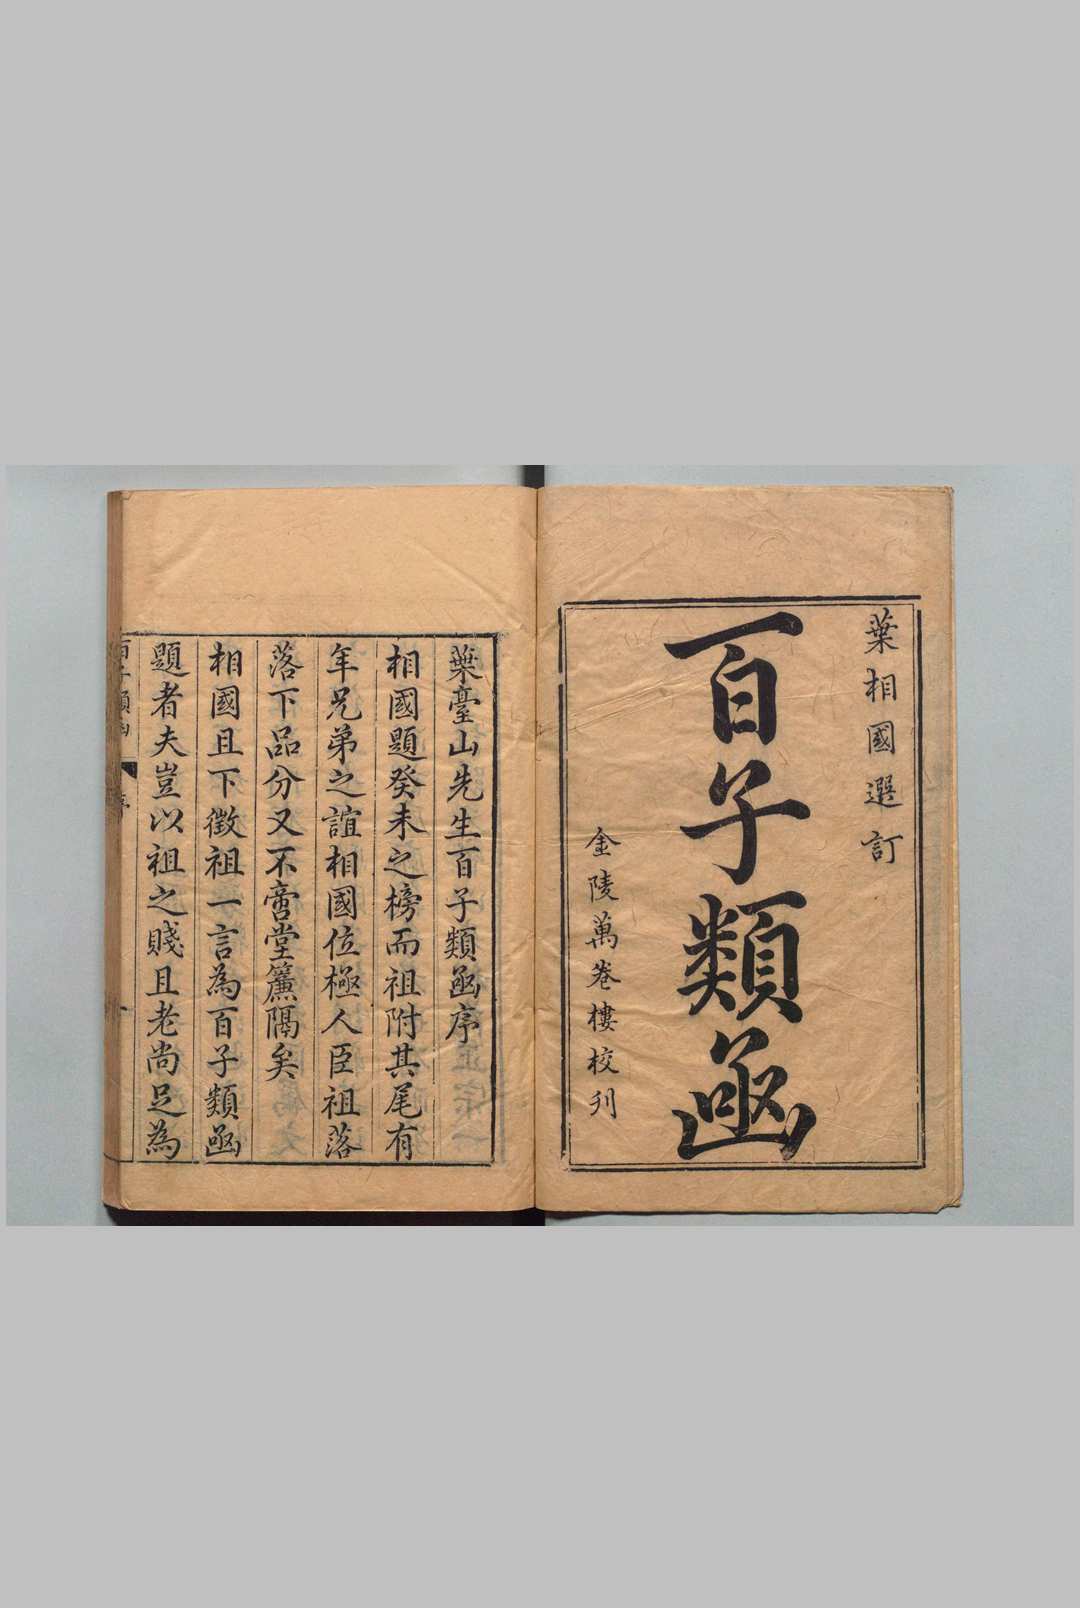 葉相國選訂
百子類函
金陵萬卷樓校刋
葉臺山先生百子類函序
相國題癸未之榜而祖附其尾有
年兄弟之誼相國位極人臣祖落
落下品分又不啻堂簾隔矣
相國且下徵祖一言為百子類函
題者夫豈以祖之賤且老尚足為
百子類函
序
一